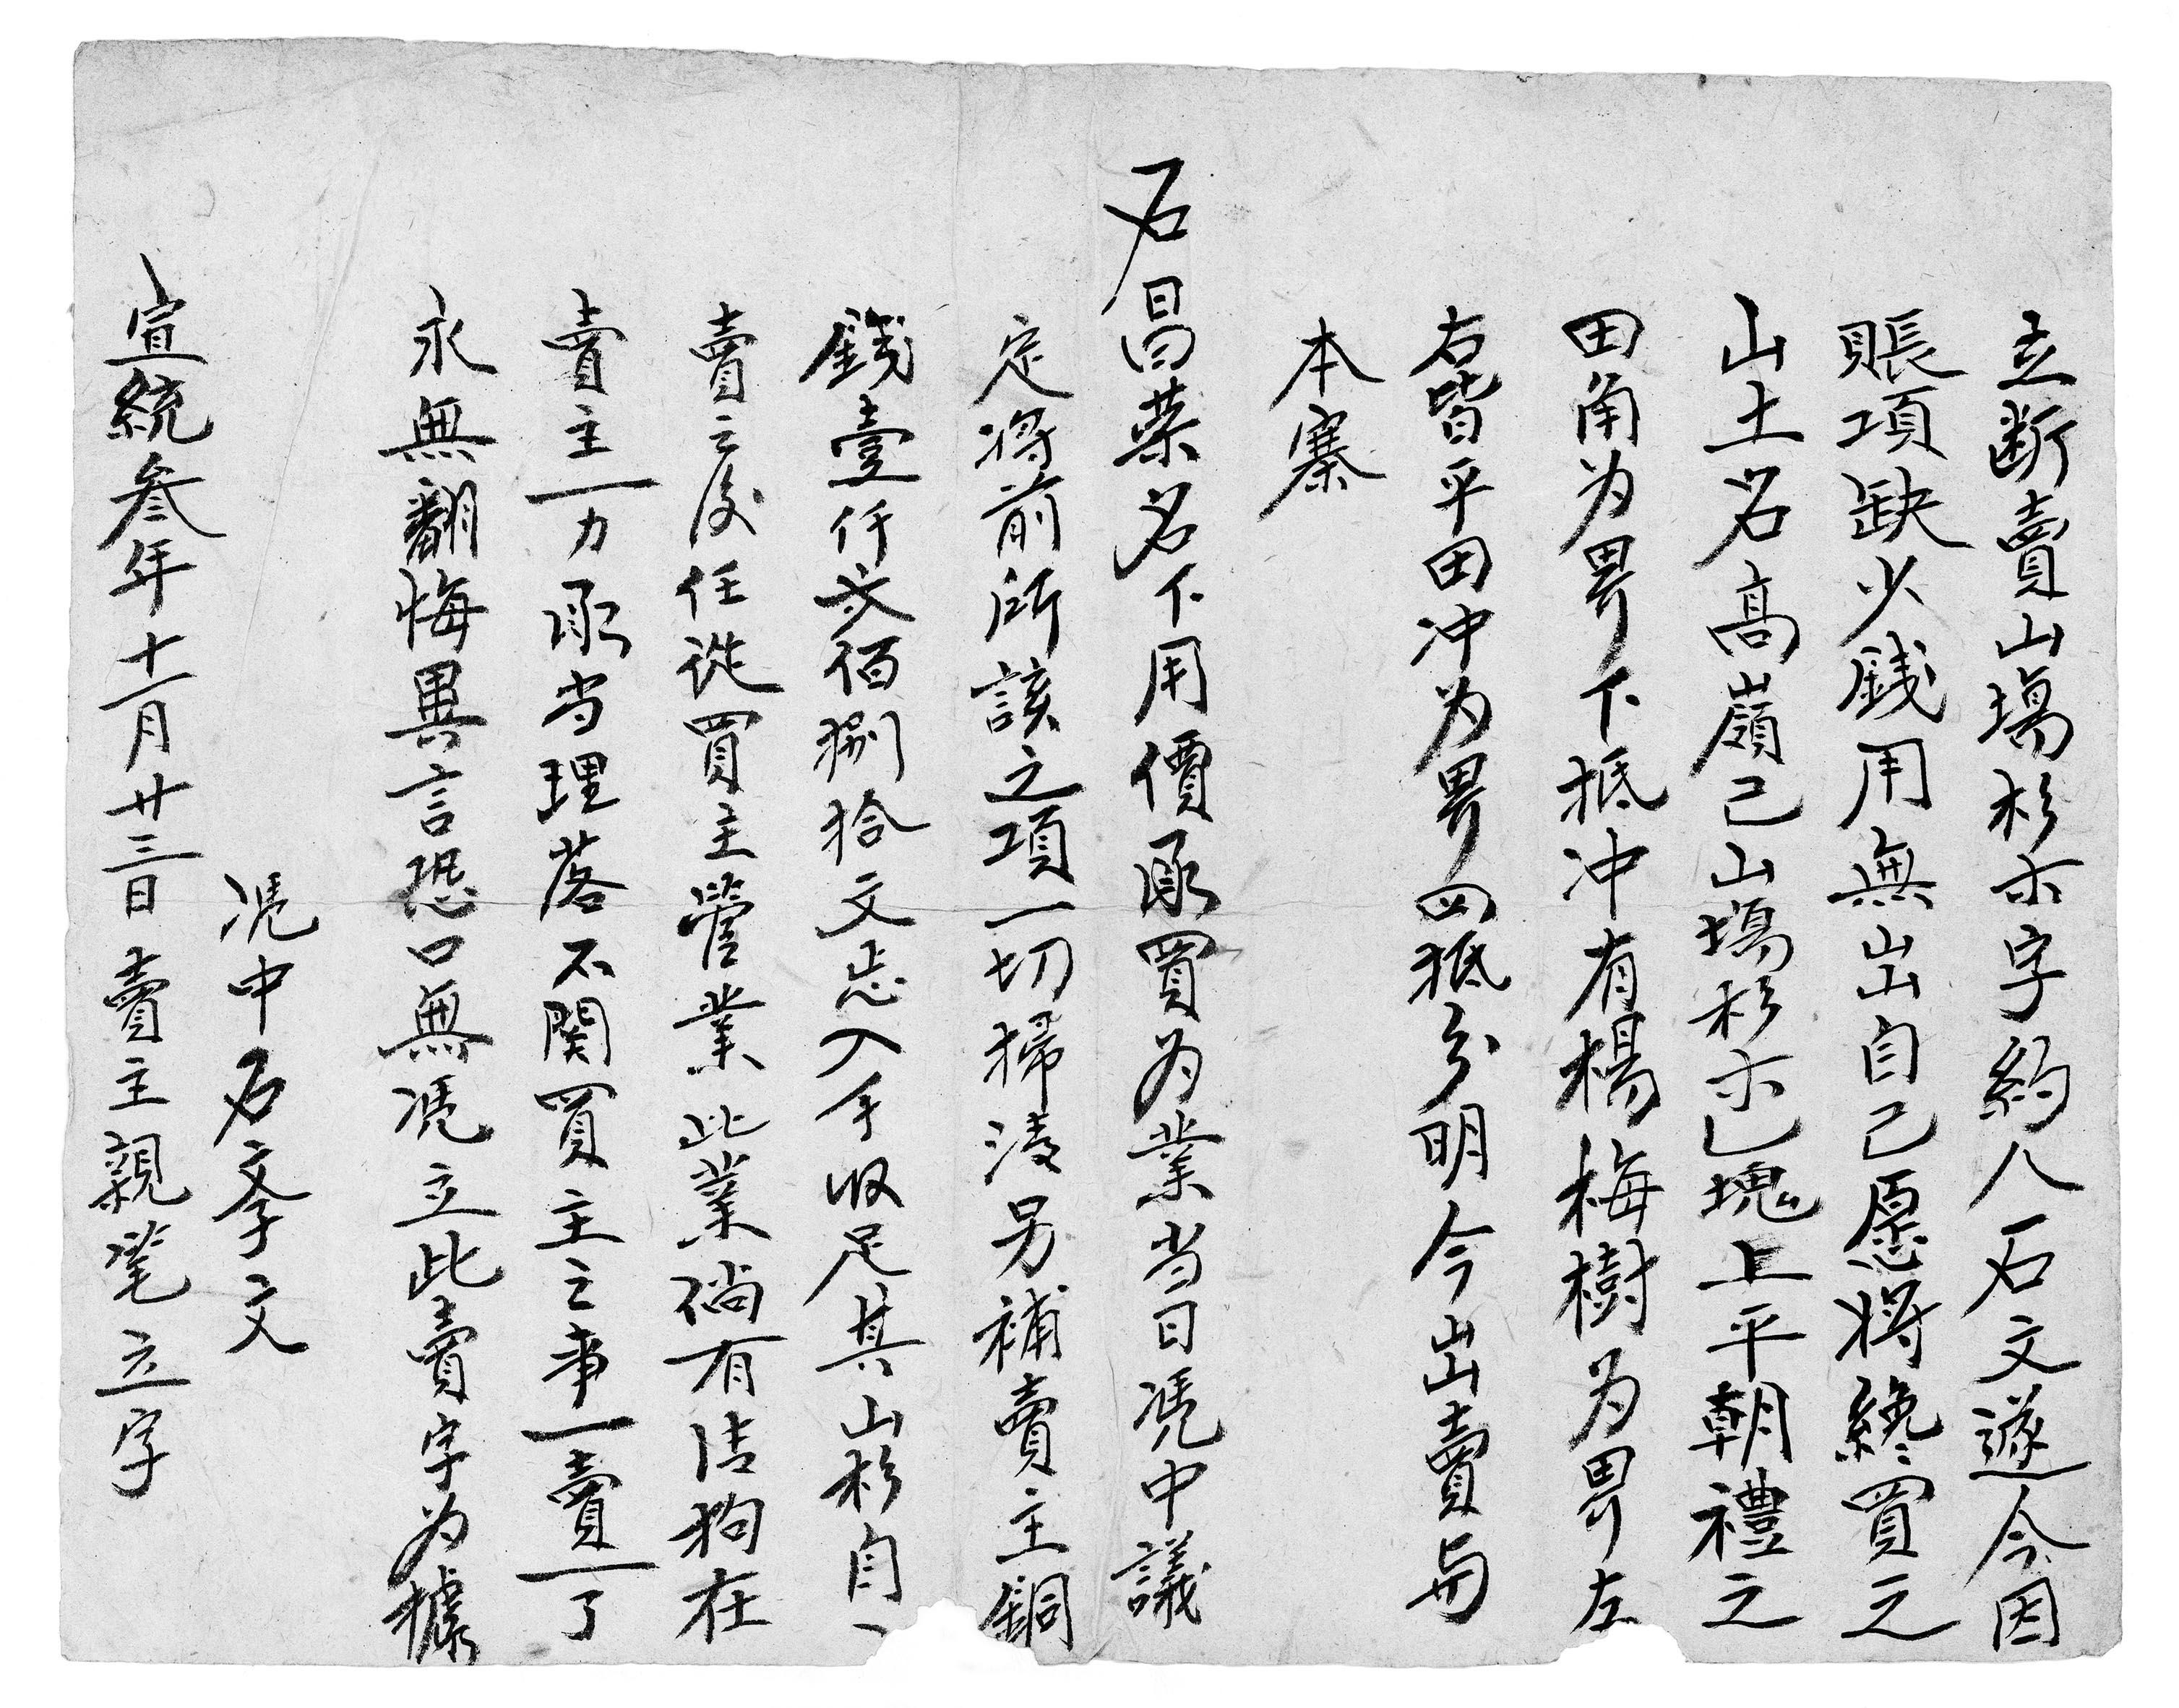 立断賣山塲杉木字約人石文遂今因
賬項缺少銭用無出自己愿将終買之
山土名高嶺己山塲杉木乙塊上平朝禮之
田角为界下抵冲有楊梅樹为界左
右皆平田冲为界四抵分明今出賣与
本寨
石昌荣名下用價承買为業当日凴中議
定将前所該之項一切掃淩另補賣主銅
銭壹仟弍佰捌拾文忐入手収足其山杉自一
賣之後任從買主管業此業倘有估狗在
賣主一力承当理落不関買主之事一賣一了
永無翻悔異言恐口無凴立此賣字为據
凴中石斈文
宣統叁年十一月廿三日賣主親筆立字